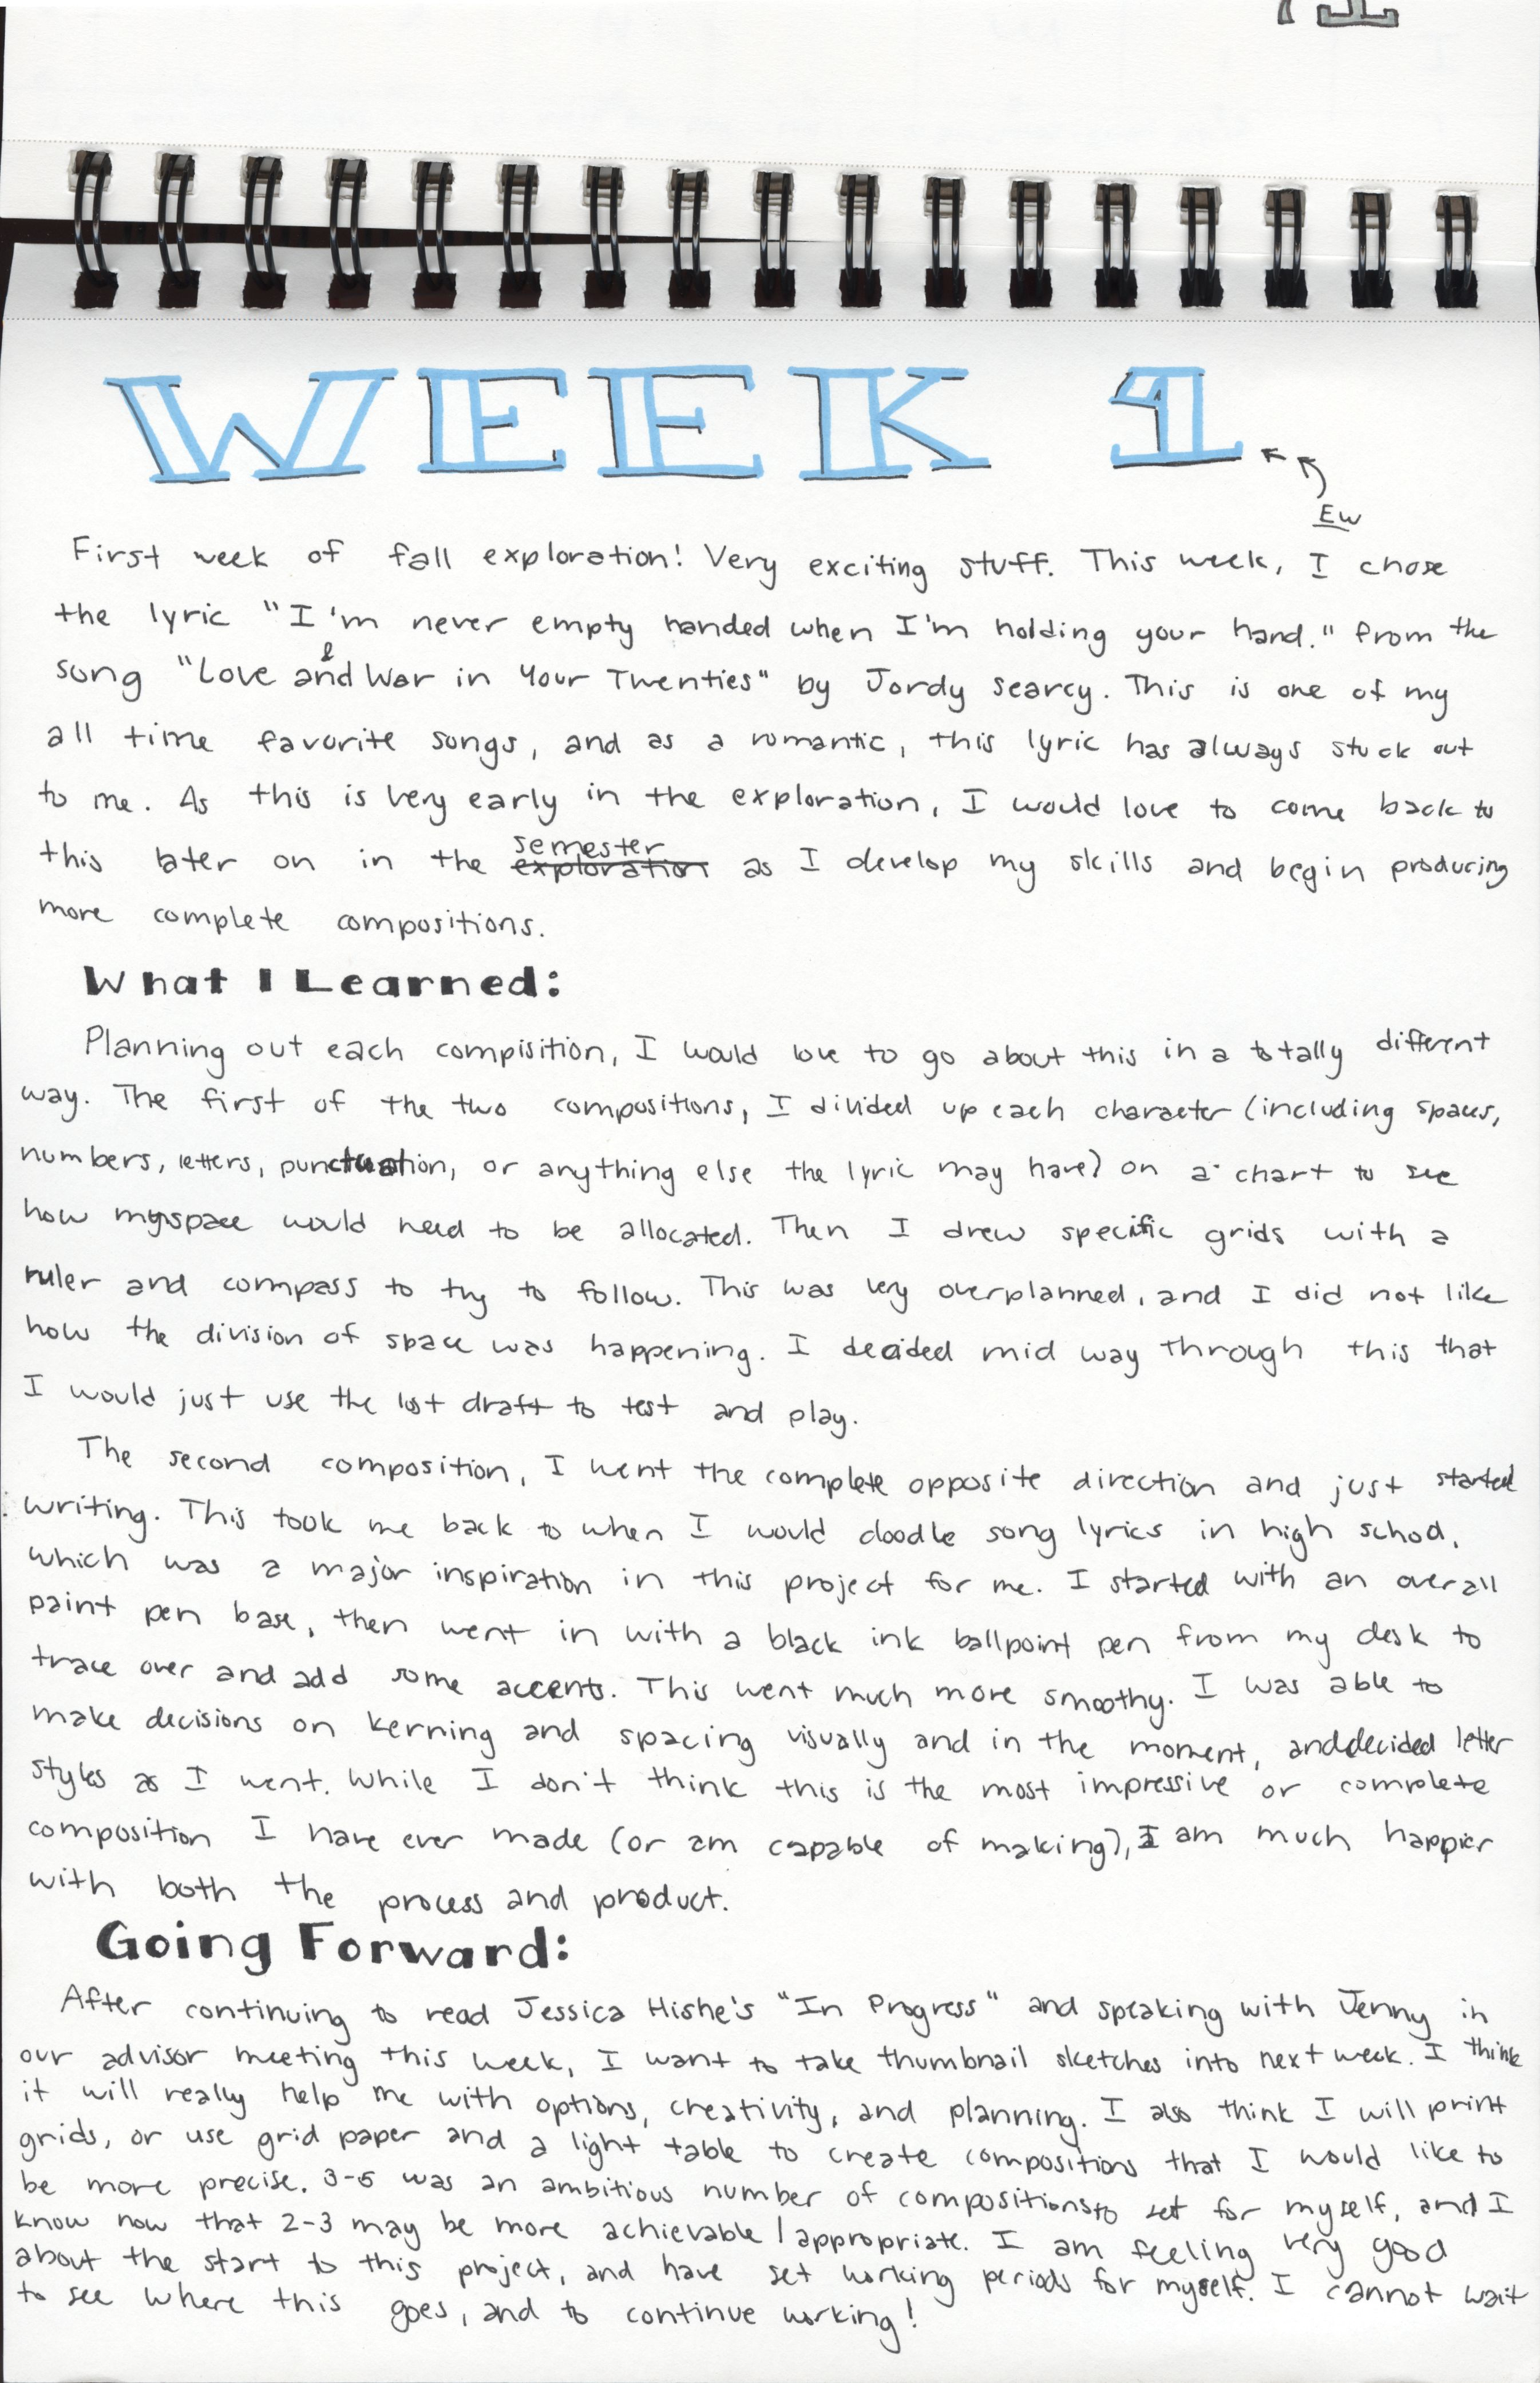 WEEK 1
Ew
First week of fall exploration! Very exciting stuff. This week, I chose
the lyric "I'm never empty handed when I'm holding your hand." from the
song "Love and & War in Your Twenties" by Jordy Searcy. This is one of my
all time favorite songs, and as a romantic, this lyric has always stuck out
to me. As this is very early in the exploration, I would love to come back to
this later on in the exploration semester as I develop my skills and begin producing
more complete compositions.
What I Learned:
Planning out each compisition, I would love to go about this in a totally different
way. The first of the two compositions, I divided up each character (including spaces,
numbers, letters, punctuation, or anything else the lyric may have) on a chart to see
how my space would need to be allocated. Then I drew specific grids with a
ruler and compass to try to follow. This was very overplanned, and I did not like
how the division of space was happening. I decided mid way through this that
I would just use the draft to test and play.
The second composition, I went the complete opposite direction and just started
writing. This took me back to when I would doodle song lyrics in high school,
which was a major inspiration in this project for me. I started with an overall
paint pen base, then went in with a black ink ballpoint pen from my desk to
trace over and add some accents. This went much more smoothy. I was able to
make decisions on kerning and spacing visually and in the moment, and decided letter
styles as I went. While I don't think this is the most impressive or complete
composition I have ever made (or am capable of making), I am much happier
with both the process and product.
Going Forward:
After continuing to read Jessica Hishe's "In Progress" and speaking with Jenny in
our advisor meeting this week, I want to take thumbnail sketches into next week. I think
it will really help me with options, creativity, and planning. I also think I will print
grids, or use grid paper and a light table to create compositions that I would like to
be more precise. 3-5 was an ambitious number of compositions to set for myself, and I
know now that 2-3 may be more achievable / appropriate. I am feeling very good
about the start to this project, and have set working periods for myself. I cannot wait
to see where this goes, and to continue working!